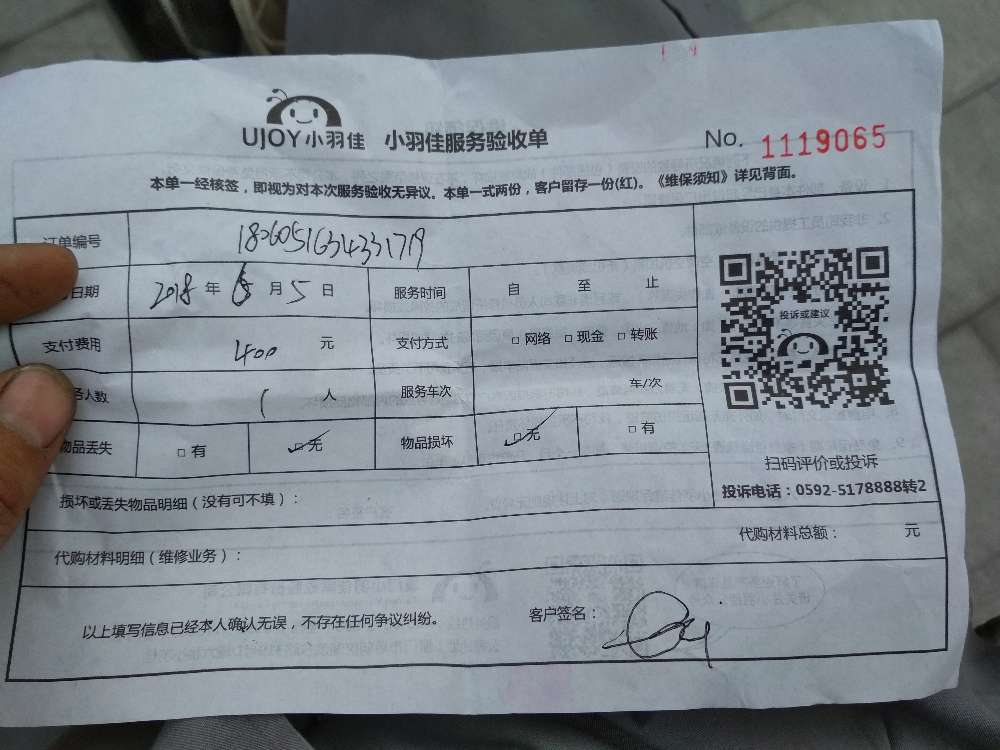 UJOY小羽佳 小羽佳服务验收单 No. 1119065
本单一经核签，即视为对本次服务验收无异议。本单一式两份，客户留存一份(红)。《维保须知》详见背面。
订单编号
日期 2018 年 6 月 5 日 服务时间 自 至 止
支付费用 400 元 支付方式 □ 网络 □ 现金 □ 转账
人数 1 人 服务车次 车/次
物品丢失 □ 有 ✓□ 无 物品损坏 ✓□ 无 □ 有
投诉或建议
扫码评价或投诉
投诉电话：0592-5178888转2
损坏或丢失物品明细（没有可不填）：
代购材料明细（维修业务）： 代购材料总额： 元
以上填写信息已经本人确认无误，不存在任何争议纠纷。 客户签名：